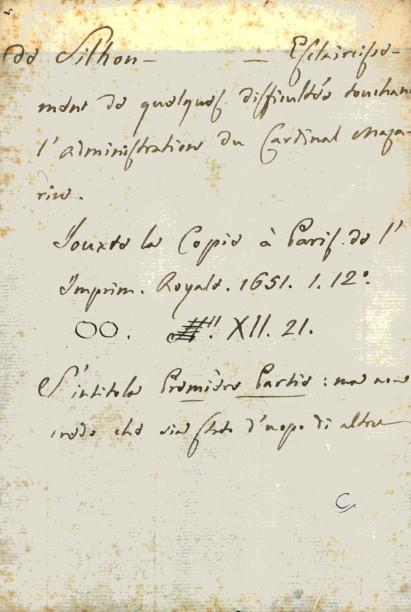 de Silhon — — Esclaircisse-
ment de quelques difficultés touchant
l'administration du Cardinal Maza-
rin.
Jouxte la Copie à Paris. de l'
Imprim. Royale. 1651. 1. 12°
OO. XII. 21.
S'intitola Première Partie : ma non
vedo che sia stato d'uopo di altre
C